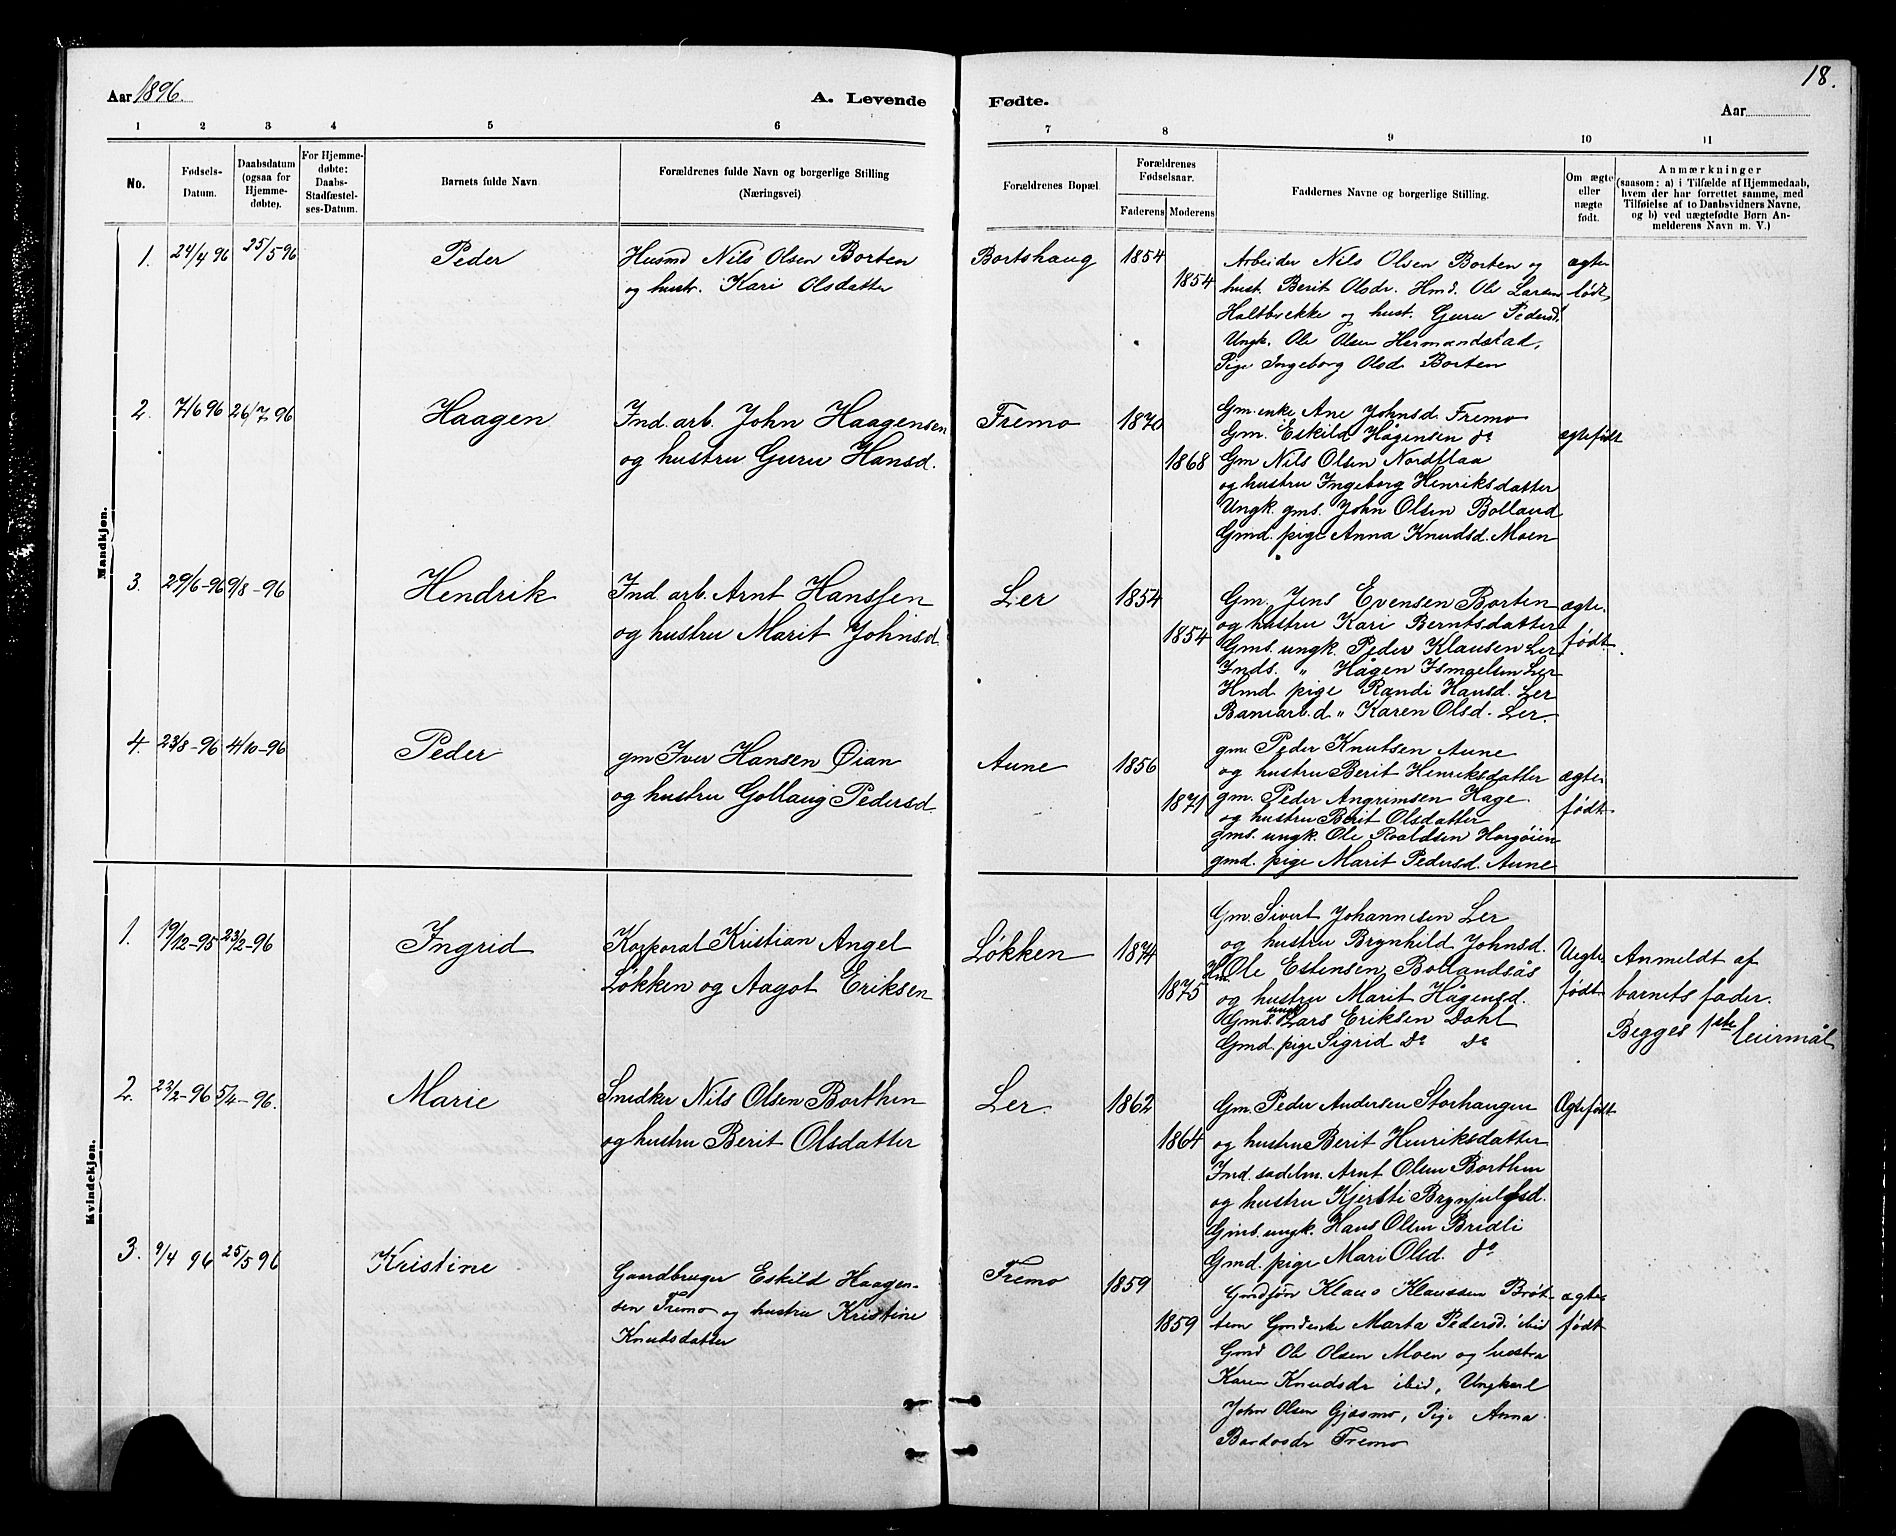 Aar 1896.
A. Levende
Fødte.
18.
Aar
1
2
3
4
5
6
7
8
9
10
11
No.
Fødsels-
Datum.
Daabsdatum
(ogsaa for
Hjemme-
døbte).
For Hjemme-
døbte:
Daabs-
Stadfæstel-
ses-Datum.
Barnets fulde Navn
Forældrenes fulde Navn og borgerlige Stilling
(Næringsvei)
Forældrenes Bopæl.
Forældrenes
Fødselsaar.
Faderens
Moderens
Faddernes Navne og borgerlige Stilling.
Om ægte
eller
uægte
født.
Anmærkninger
(saasom: a) i Tilfælde af Hjemmedaab,
hvem der har forrettet samme, med
Tilføielse af to Daabsvidners Navne,
og b) ved uægtefødte Børn An-
melderens Navn m. V.)
Mandkjøn.
1. 24/4 96 25/5 96 Peder
Husmd Nils Olsen Borten
og hustr. Kari Olsdatter
Bortshaug 1854
1854
Arbeider Nils Olsen Borten og
hust. Berit Olsdr. Hmd. Ole Larsen
Haltbrekke og hust. Guru Pedersd.
Ungk. Ole Olsen Hermandstad,
Pige Ingeborg Olsd Borten
ægte
født
2. 7/6 96 26/7 96 Haagen
Ind. arb. John Haagensen
og hustru Guru Hansd.
Fremo 1870
1868
Gm. enke Ane Johnsd. Fremo
Gm. Eskild Hågensen do
Gm Nils Olsen Nordflaa
og hustru Ingeborg Henriksdatter
Ungk. gms. John Olsen Bolland
Gmd. pige Anna Knudsd. Moen
ægtefødt
3. 29/6-96 9/8-96 Hendrik
Ind. arb. Arnt Hanssen
og hustru Marit Johnsd.
Ler 1854
1854
Gm. Jens Evensen Borten
og hustru Kari Berntsdatter
Gms. ungk. Peder Klausen Ler
Inds. " Hågen Ismaelsen Ler
Hmd. pige Randi Hansd. Ler
Banearb. d " Karen Olsd. Ler.
ægte
født.
4. 23/8-96 4/10-96 Peder
gm Iver Hansen Øian
og hustru Gollaug Pedersd.
Aune 1856
1871
gm. Peder Knutsen Aune
og hustru Berit Henriksdatter
gm. Peder Angrimsen Hage
og hustru Berit Olsdatter
gms. ungk. Ole Roaldsen Horgøien
gmd. pige Marit Pedersd. Aune
ægte
født.
Kvindekjøn.
1. 19/12-95 23/2-96 Ingrid
Korporal Kristian Angel
Løkken og Aagot Eriksen
Løkken 1874
1875
Gm. Sivert Johannesen Ler
og hustru Brynhild Johnsd.
Hm Ole Estensen Bollandsås
og hustru Marit Hågensd.
Gms. ungk Lars Eriksen Dahl
Gmd. pige Sigrid do do
Uegte
født.
Anmeldt af
barnets fader.
Begges 1ste leiermål
2. 22/2-96 5/4-96. Marie
Snedker Nils Olsen Borthen
og hustru Berit Olsdatter
Ler 1862
1864
Gm. Peder Andersen Storhaugen
og hustru Berit Henriksdatter
Ind. sadelm. Arnt Olsen Borthen
og hustru Kjersti Brynjulfsd.
Gms. ungk. Hans Olsen Bridli
Gmd. pige Mari Olsd. do
Ægtefødt
3. 9/4 96 25/5 96 Kristine
Gaardbruger Eskild Haagen-
sen Fremo og hustru Kristine
Knutsdatter
Fremo 1859
1859
Gmdsøn Klaus Klaussen Brøt-
tem Gmdenke Marta Pedersd. ibid
Gmd Ole Olsen Moen og hustru
Karen Knudsdr ibid, Ungkarl
John Olsen Gjasmo, Pige Anna
Bardosdr Fremo
ægte
født